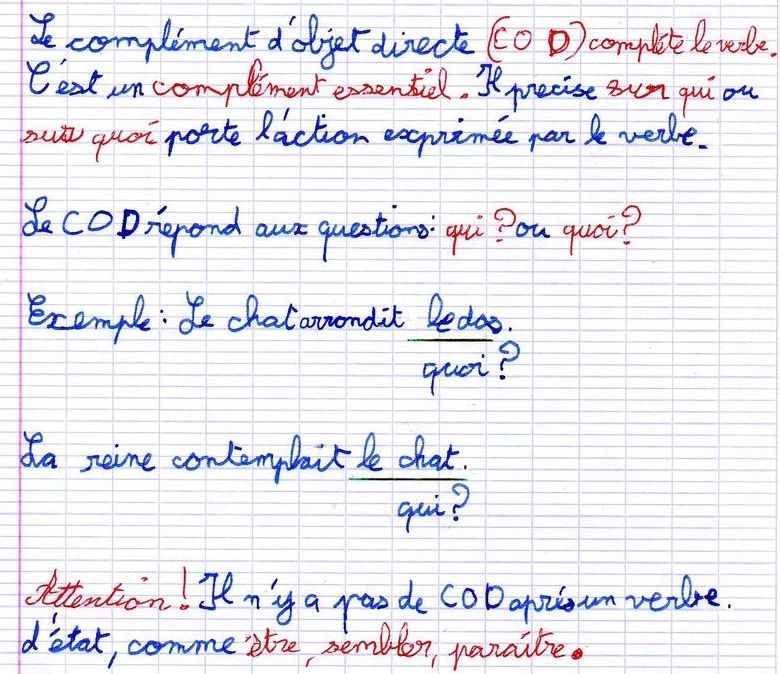 Le complément d'objet directe (COD) complète le verbe.
C'est un complément essentiel. Il precise sur qui ou
sur quoi porte l'action exprimée par le verbe.
Le COD répond aux questions: qui? ou quoi?
Exemple: Le chat arrondit le dos.
quoi?
La reine contemplait le chat.
qui?
Attention! Il n'y a pas de COD après un verbe.
d'état, comme être, sembler, paraître.